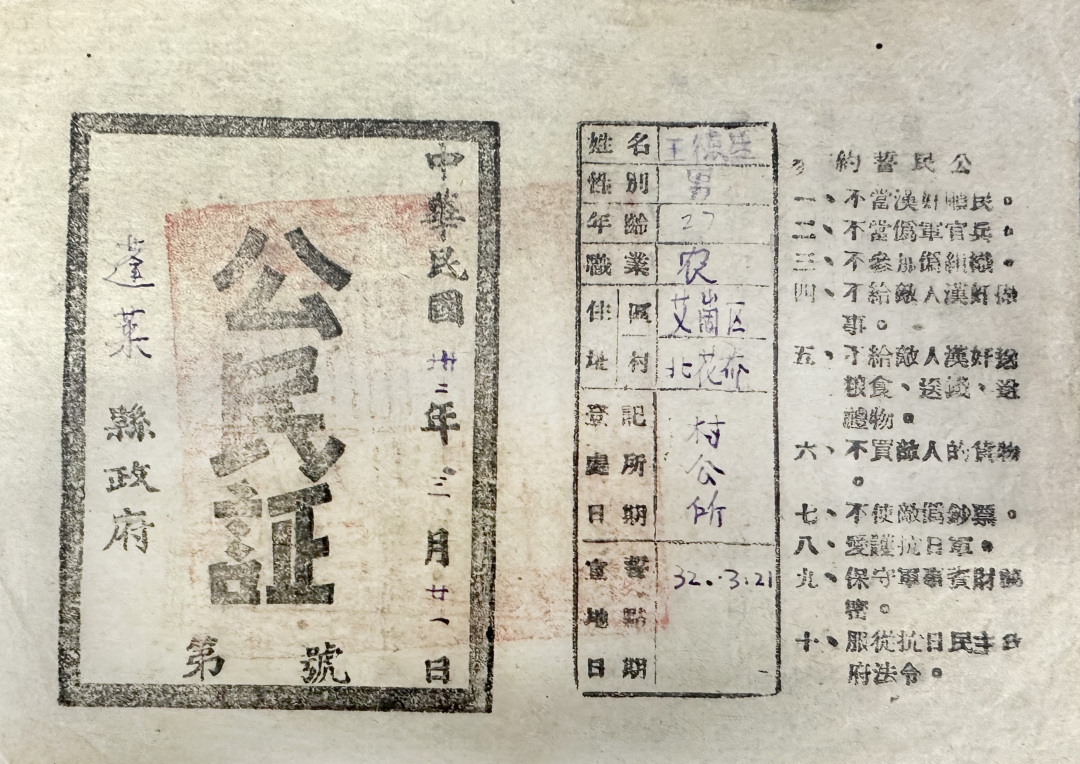 中華民國卅二年三月廿一日
公民証
第 號
蓬莱縣政府
姓名 王
性別 男
年齡 27
職業 农
住址 區 艾崮区
村 北花夼
登記處所 村公所
日期
宣誓地點 32.3.21
日期
公民誓約
一、不當漢奸順民。
二、不當僞軍官兵。
三、不參加僞組織。
四、不給敵人漢奸做
事。
五、不給敵人漢奸送
粮食、送錢、送
禮物。
六、不買敵人的貨物
。
七、不使敵僞鈔票。
八、愛護抗日軍。
九、保守軍事資財祕
密。
十、服從抗日民主政
府法令。